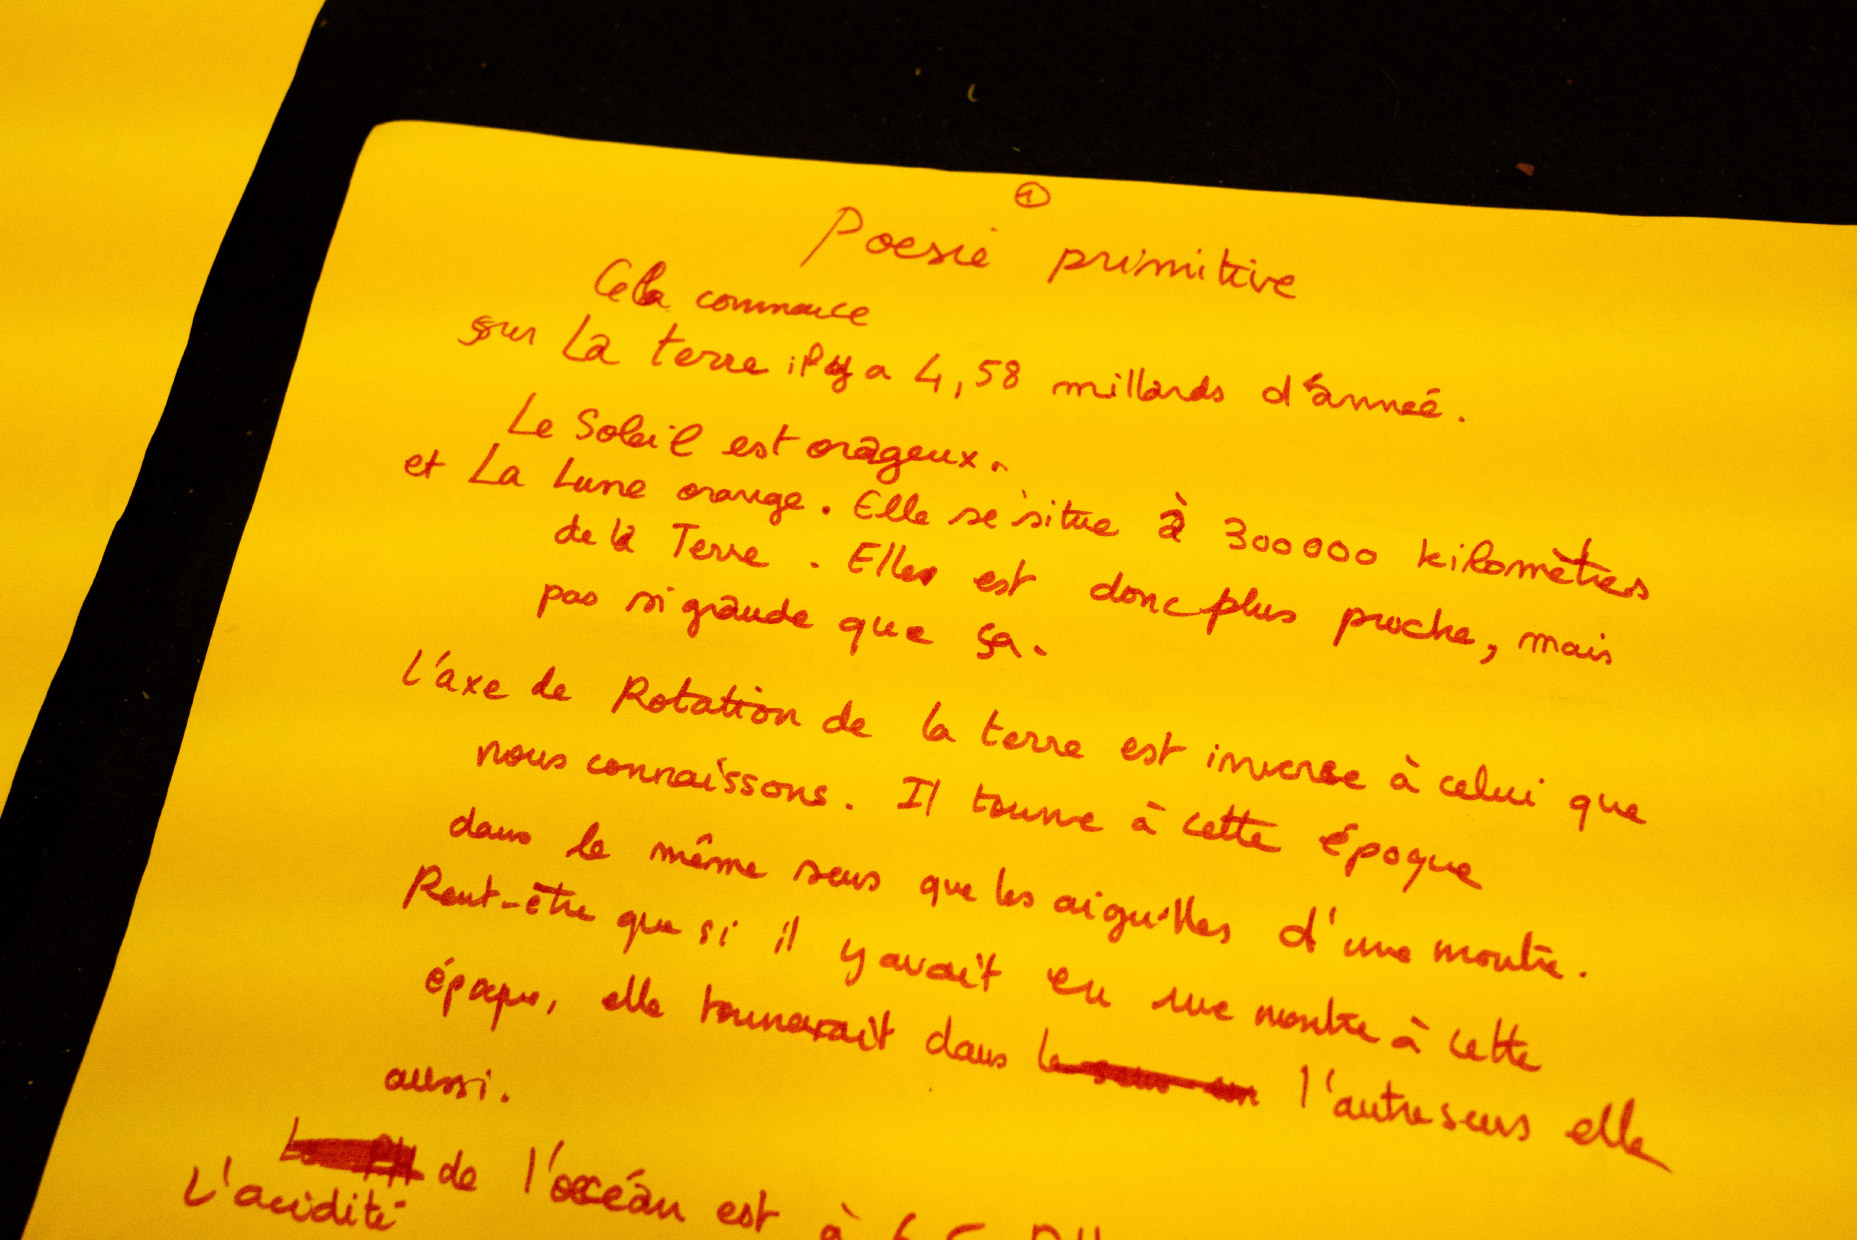 ①
Poesie primitive
Cela commence
sur La terre il y a 4,58 millards d'année.
Le Soleil est orageux.
et La Lune orange. Elle se situe à 300000 kilomètres
de la Terre. Elle est donc plus proche, mais
pas si grande que ça.
L'axe de Rotation de la terre est inverse à celui que
nous connaissons. Il tourne à cette époque
dans le même sens que les aiguilles d'une montre.
Peut-être que si il y avait eu une montre à cette
époque, elle tournerait dans l'autre sens elle
aussi.
de l'océan est à
L'acidité